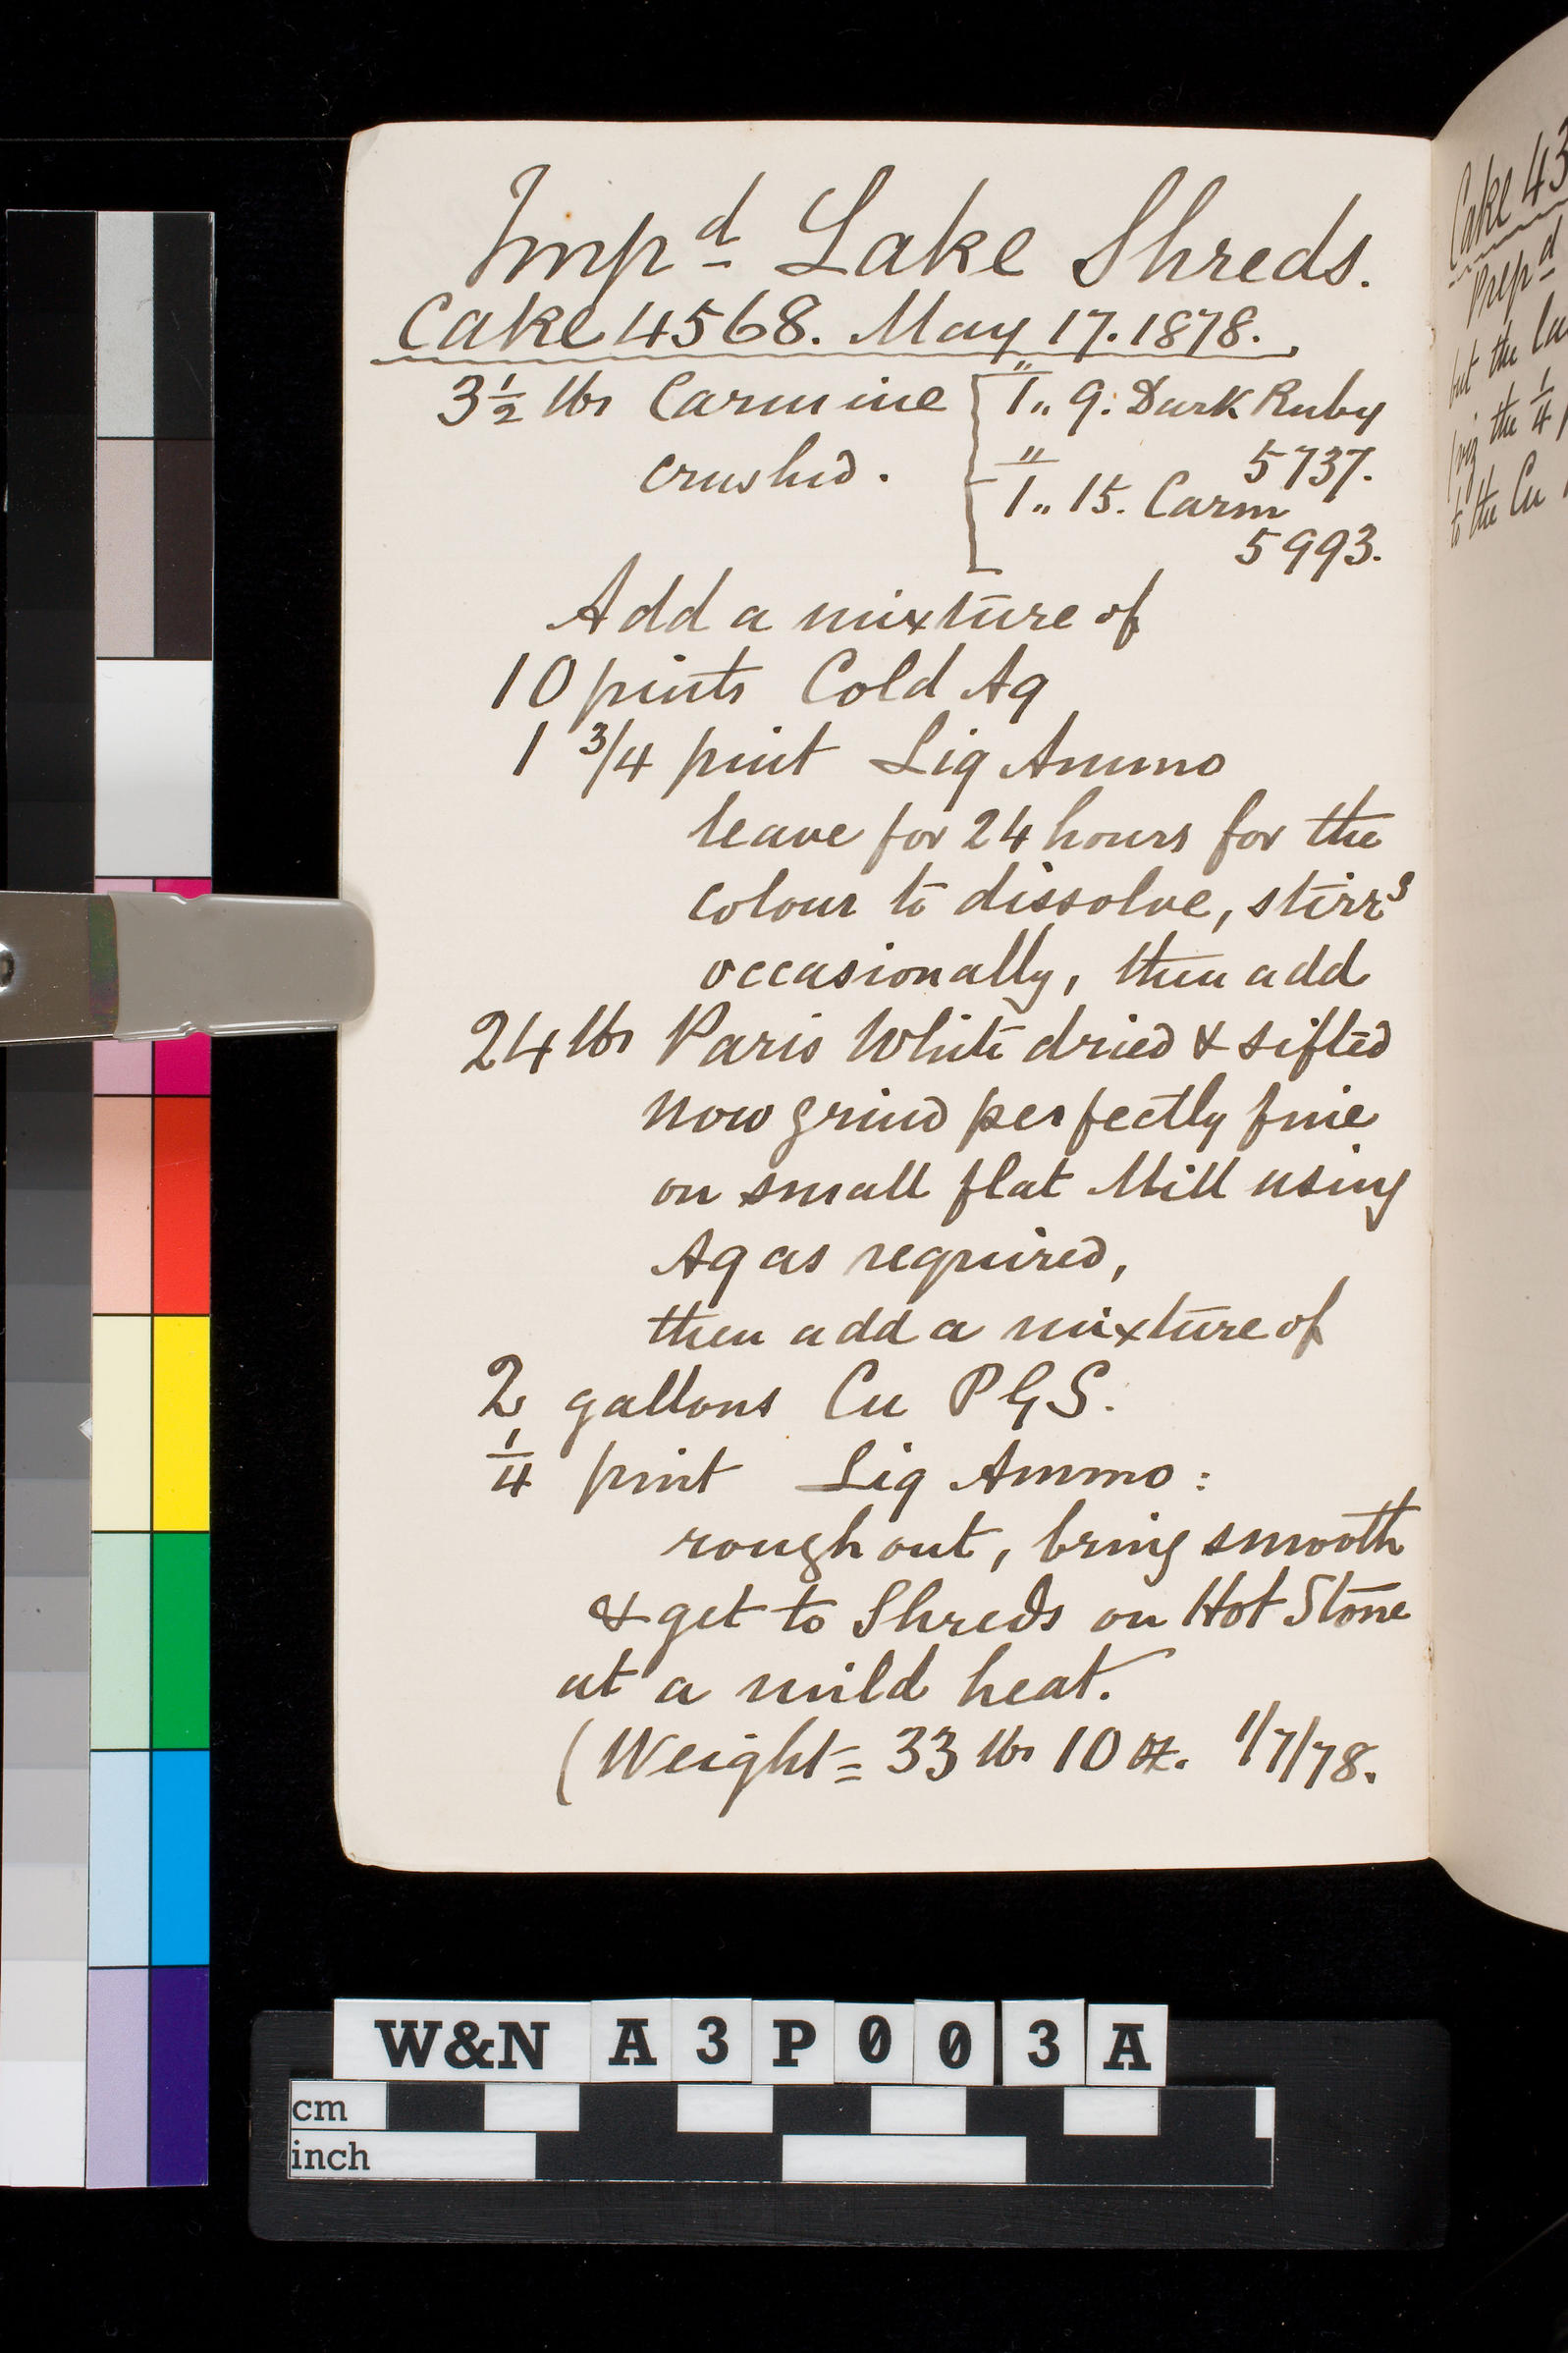 Impd Lake Shreds.
Cake 4568. May 17. 1878.
3½ lbs Carmine [ 1" „ 9. Dark Ruby
crushed. 5737.
1" „ 15. Carm
5993.
Add a mixture of
10 pints Cold Aq
1 3/4 pint Liq Ammo
leave for 24 hours for the
colour to dissolve, stirrg
occasionally, then add
24 lbs Paris White dried & sifted
now grind perfectly fine
on small flat Mill using
Aq as required,
then add a mixture of
2 gallons Cu P G S.
¼ pint Liq Ammo:
rough out, bring smooth
& get to Shreds on Hot Stone
at a mild heat.
(Weight = 33 lbs 10 oz. 1/7/78.
Cake 43
Prepd
but the la
the ¼
to the Cu
W&N A3P003A
cm
inch